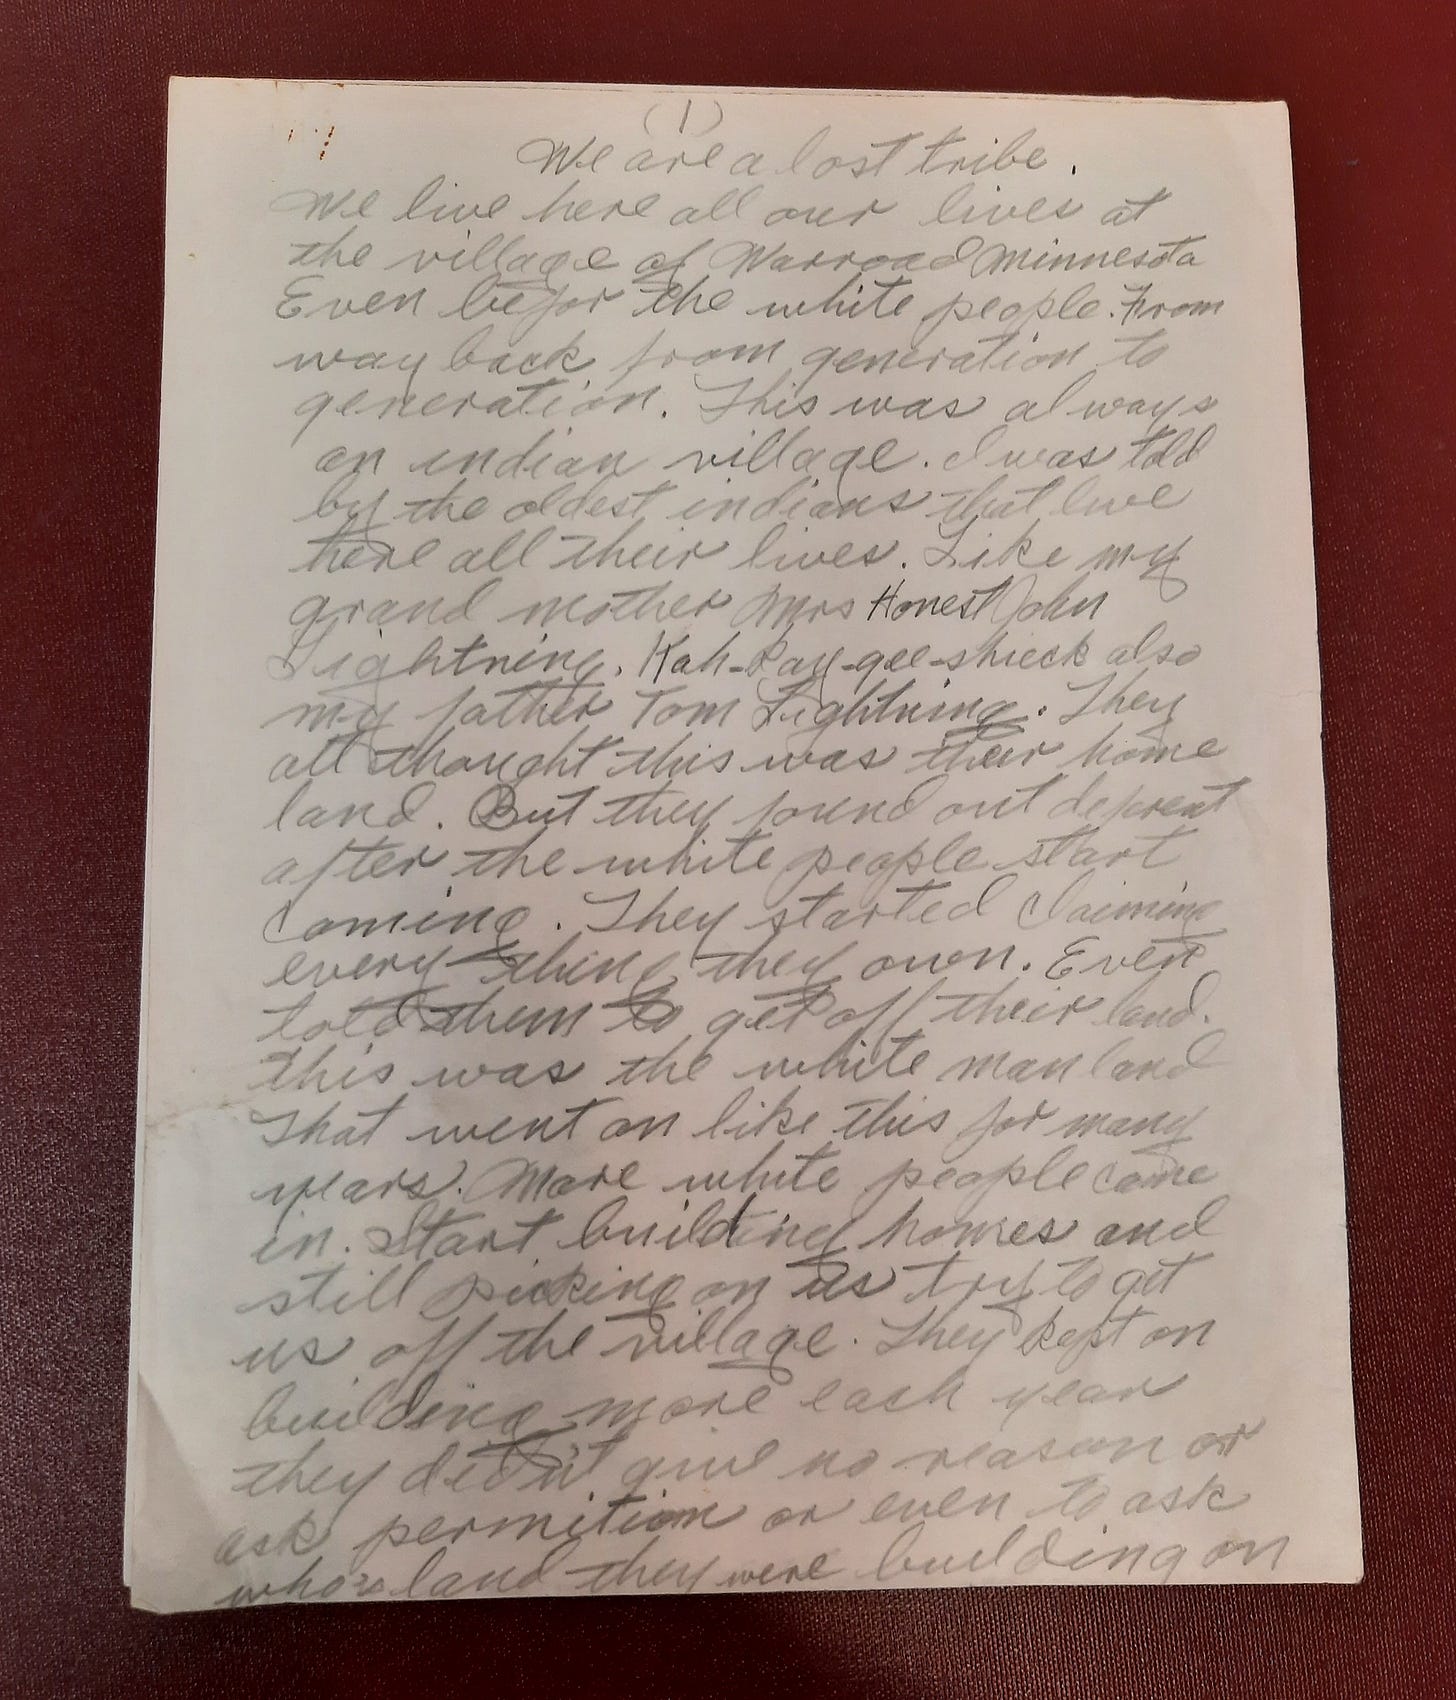 (1)
We are a lost tribe.
We live here all our lives at
the village of Warroad Minnesota
Even befor the white people. From
way back from generation to
generation. This was always
an indian village. I was told
by the oldest indians that live
here all their lives. Like my
grand mother Mrs Honest John
Lightning. Kah-Kay-gee-shieck also
my father Tom Lightning. They
all thought this was their home
land. But they found out deferent
after the white people start
coming. They started claiming
every thing they own. Even
told them to get off their land.
this was the white man land
That went on like this for many
years. More white people came
in. Start building homes and
still picking on us try to get
us off the village. They kept on
building more each year
they didn't give no reason or
ask permition or even to ask
who's land they were building on